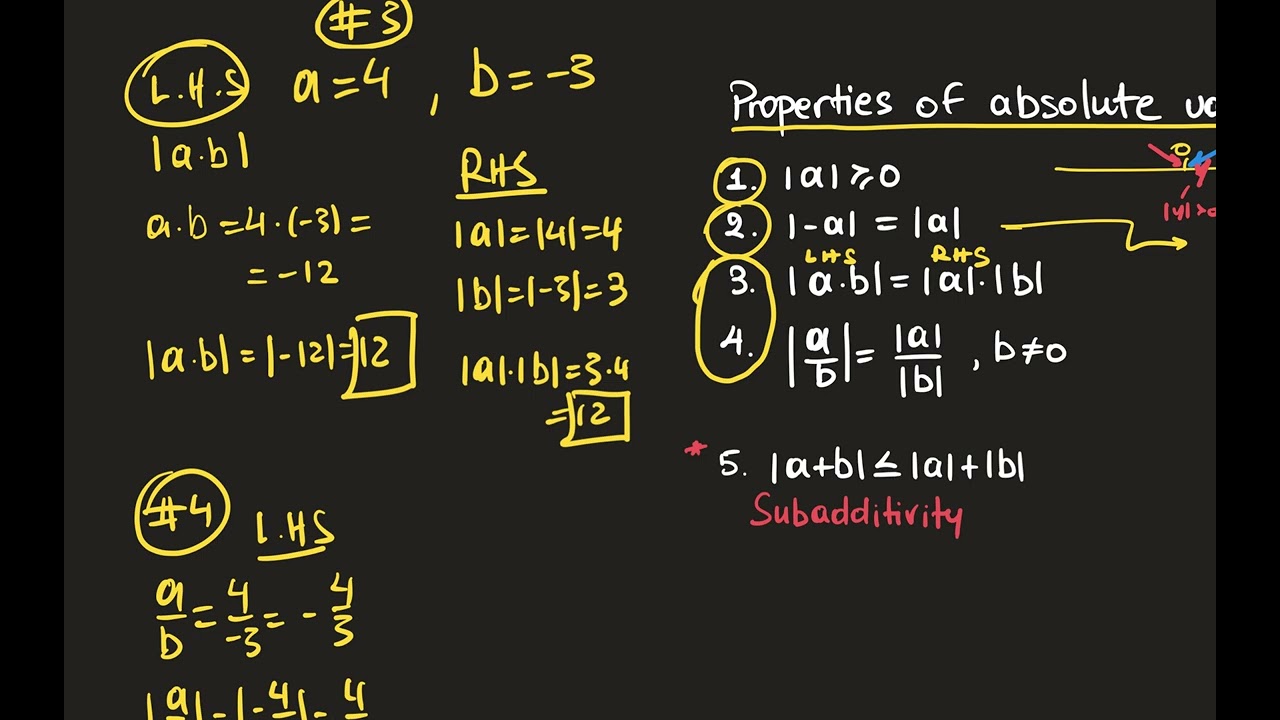 #3
L.H.S a=4 , b=-3
|a·b|
a·b=4·(-3)=
=-12
|a·b|=|-12|=12
RHS
|a|=|4|=4
|b|=|-3|=3
|a|·|b|=3·4
=12
#4 L.HS
a/b = 4/-3 = - 4/3
Properties of absolute
0
1. |a|≥0
2. |-a| = |a|
LHS RHS
3. |a·b|=|a|·|b|
4. |a/b| = |a|/|b| , b≠0
* 5. |a+b|≤|a|+|b|
Subadditivity